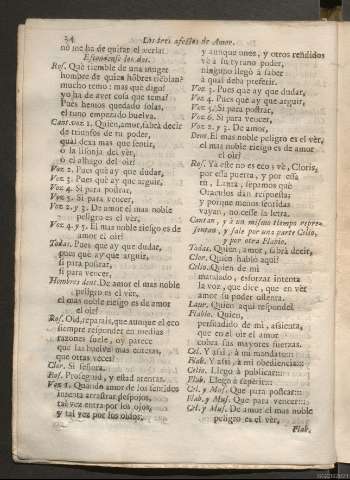 24 Los tres afectos de Amor.
no me ha de quitar el verla!
Escondense los dos.
Ros. Què tiemble de una muger
hombre de quien hõbres tiẽblan?
mucho temo: mas què digo?
yo ha de aver cosa que tema?
Pues hemos quedado solas,
el tono empezado buelva.
Cant. voz 1. Quien, amor, sabrà decir
de triunfos de tu poder,
qual dexa mas que sentir,
ò la lisonja del vèr,
ò el alhago del oir?
Voz 2. Pues què ay que dudar,
Voz 3. Pues què ay que arguir,
Voz 4. Si para postrar,
Voz 5. Si para vencer,
Voz 2. y 3. De amor el mas noble
peligro es el vèr,
Voz 4. y 5. El mas noble riesgo es de
amor el oir?
Todas. Pues què ay que dudar,
pues què ay que arguir,
si para postrar,
si para vencer,
Hombres dent. De amor el mas noble
peligro es el vèr,
el mas noble riesgo es de amor
el oir?
Ros. Oid, reparais, que aunque el eco
siempre responder en medias
razones suele, oy parece
que las buelve mas enteras,
que otras veces?
Clor. Si señora.
Ros. Proseguid, y estad atentas.
Voz 1. Quando amor de los sentidos
intenta arrastrar despojos,
tal vez entra por los ojos,
y tal vez por los oidos:
y aunque unos, y otros rendidos
vè à su tyrano poder,
ninguno llegò à saber
à qual deba preferir.
Voz 3. Pues què ay que dudar,
Voz 4. Pues què ay que arguir,
Voz 5. Si para postrar,
Voz 6. Si para vencer,
Voz 2. y 3. De amor,
Dent. El mas noble peligro es el vèr,
el mas noble riesgo es de amor
el oir?
Ros. Ya este no es eco: vè, Cloris,
por essa puerta, y por essa
tu, Laura, sepamos què
Oraculos dàn respuesta;
y porque menos sentidas
vayan, no cesse la letra.
Cantan, y à un mismo tiempo repre-
sentan, y sale por una parte Celio,
y por otra Flabio.
Todas. Quien, amor, sabrà decir,
Clor. Quien hablò aqui?
Celio. Quien de mi
matulado, esforzar intenta
la voz, que dice, que en vèr
amor su poder ostenta.
Laur. Quien aqui responde?
Flabio. Quien,
persuadido de mi, assienta,
que en el oir el amor
cobra sus mayores fuerzas.
Cel. Y assi, à mi mandato:::
Flab. Y assi, à mi obediencia:::
Celio. Llegò à publicar:::
Flab. Llega à repetir:::
Cel. y Mus. Que para postrar:::
Flab. y Mus. Que para vencer:::
Cel. y Mus. De amor el mas noble
peligro es el vèr,
Flab.